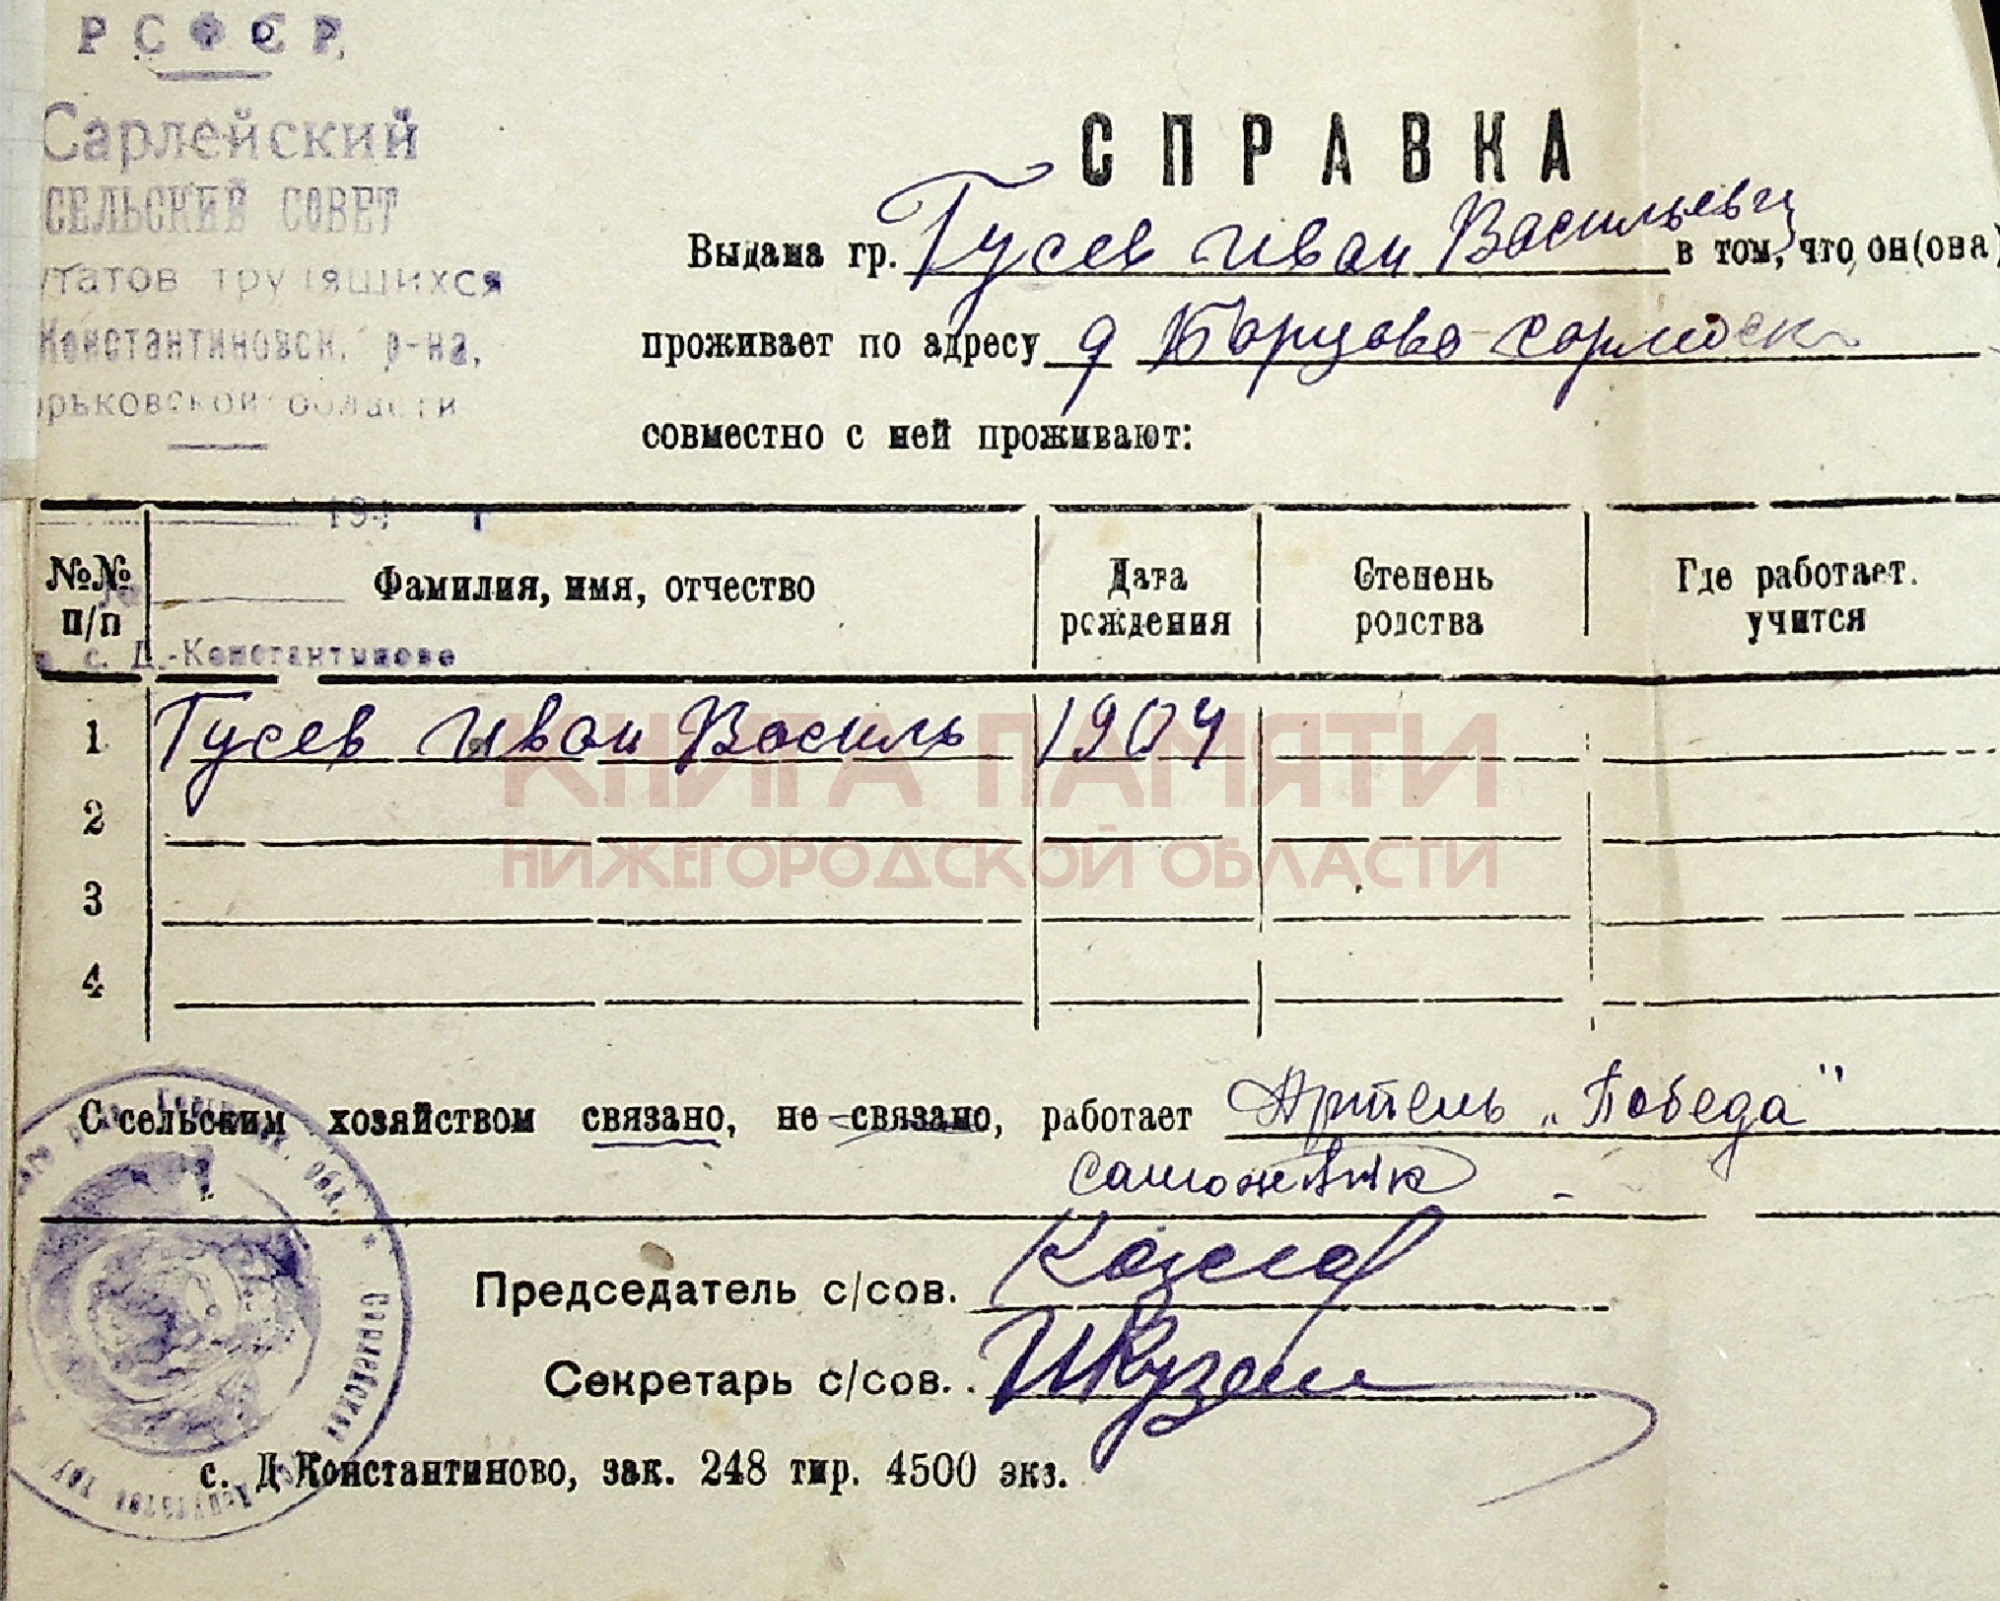 РСФСР
Сарлейский
СЕЛЬСКИЙ СОВЕТ
утатов трудящихся
Константиновск. р-на,
орьковской области
194 г
с. Д.-Константинове
СПРАВКА
Выдана гр. Гусев Иван Васильевич в том, что он(она)
проживает по адресу д Борцово
совместно с ней проживают:
№№ п/п Фамилия, имя, отчество Дата рождения Степень родства Где работает. учится
1 Гусев Иван Василь 1904
2
3
4
КНИГА ПАМЯТИ
НИЖЕГОРОДСКОЙ ОБЛАСТИ
С сельским хозяйством связано, не связано, работает Артель „Победа"
Председатель с/сов. Козлов
Секретарь с/сов..
с. Д Константиново, зак. 248 тир. 4500 экз.